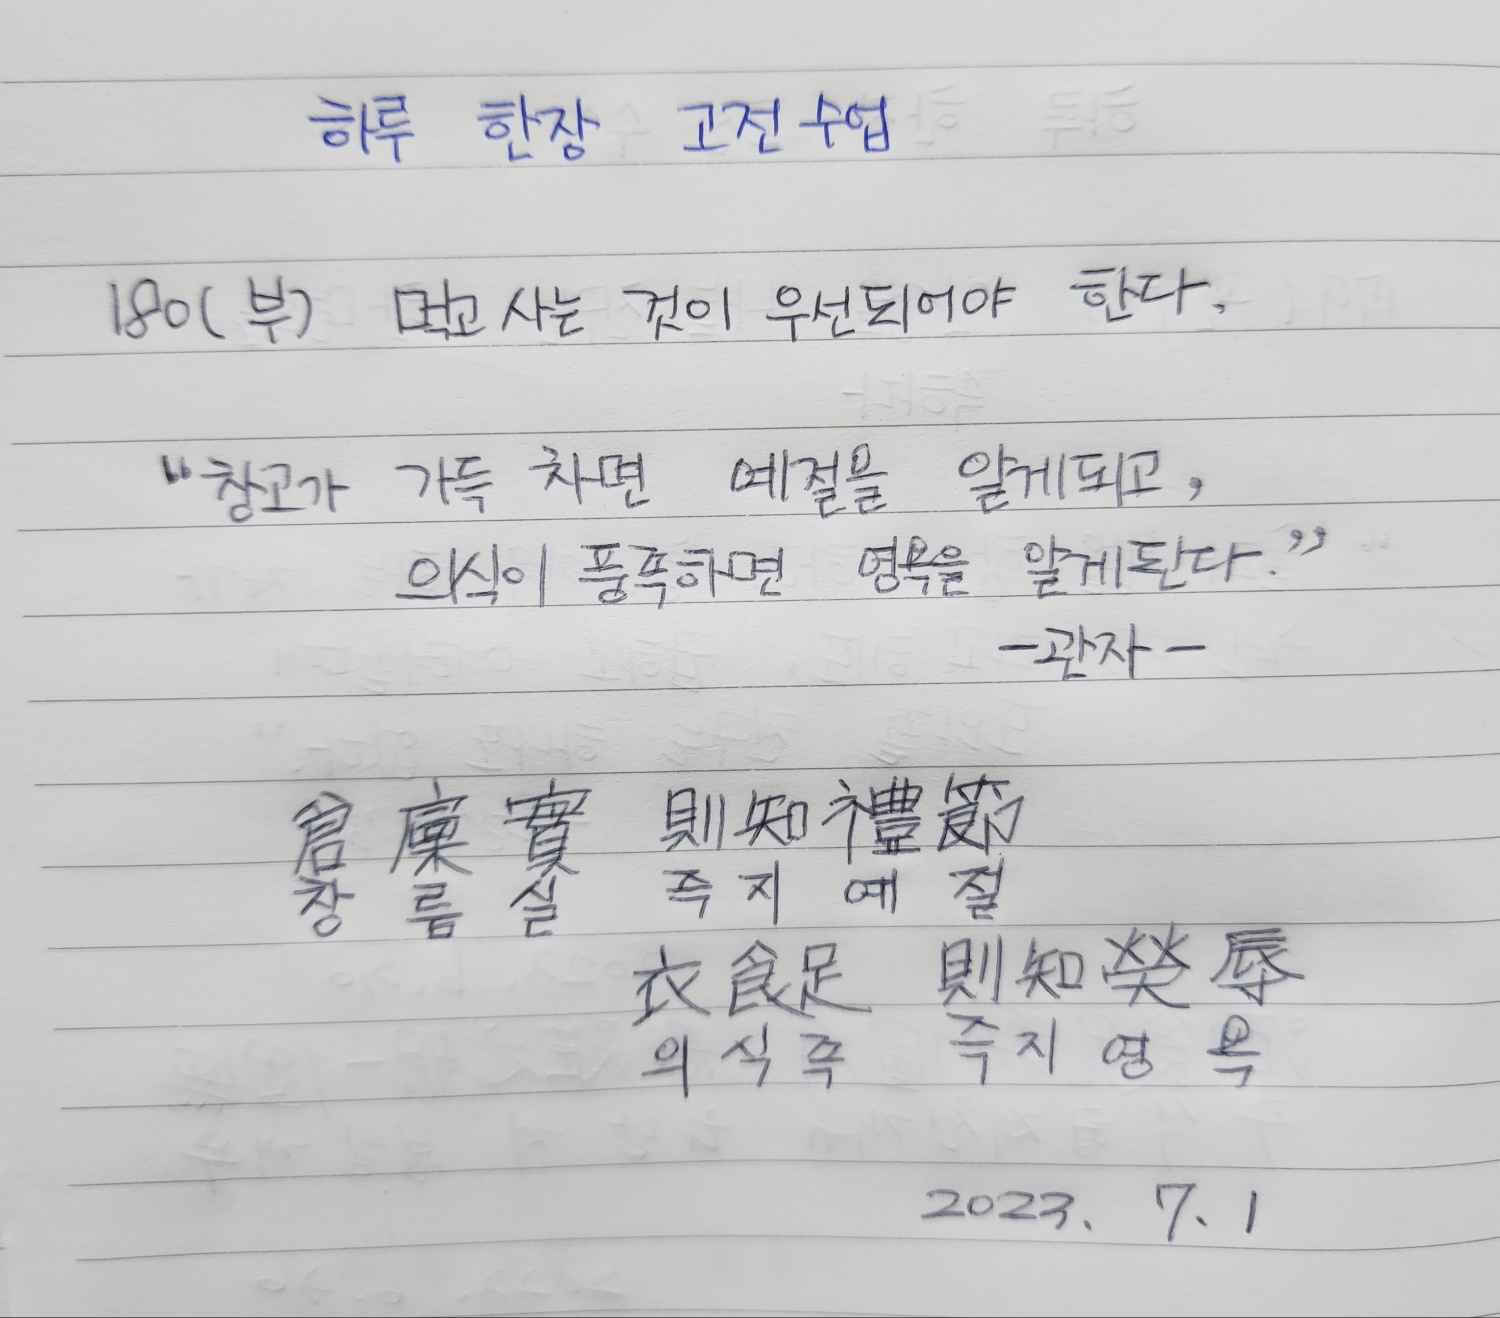 하루 한장 고전 수업
180(부) 먹고 사는 것이 우선되어야 한다.
"창고가 가득 차면 예절을 알게되고,
의식이 풍족하면 영욕을 알게된다."
-관자-
倉廩實 則知禮節
창름실 즉지예절
衣食足 則知榮辱
의식족 즉지영욕
2023. 7. 1